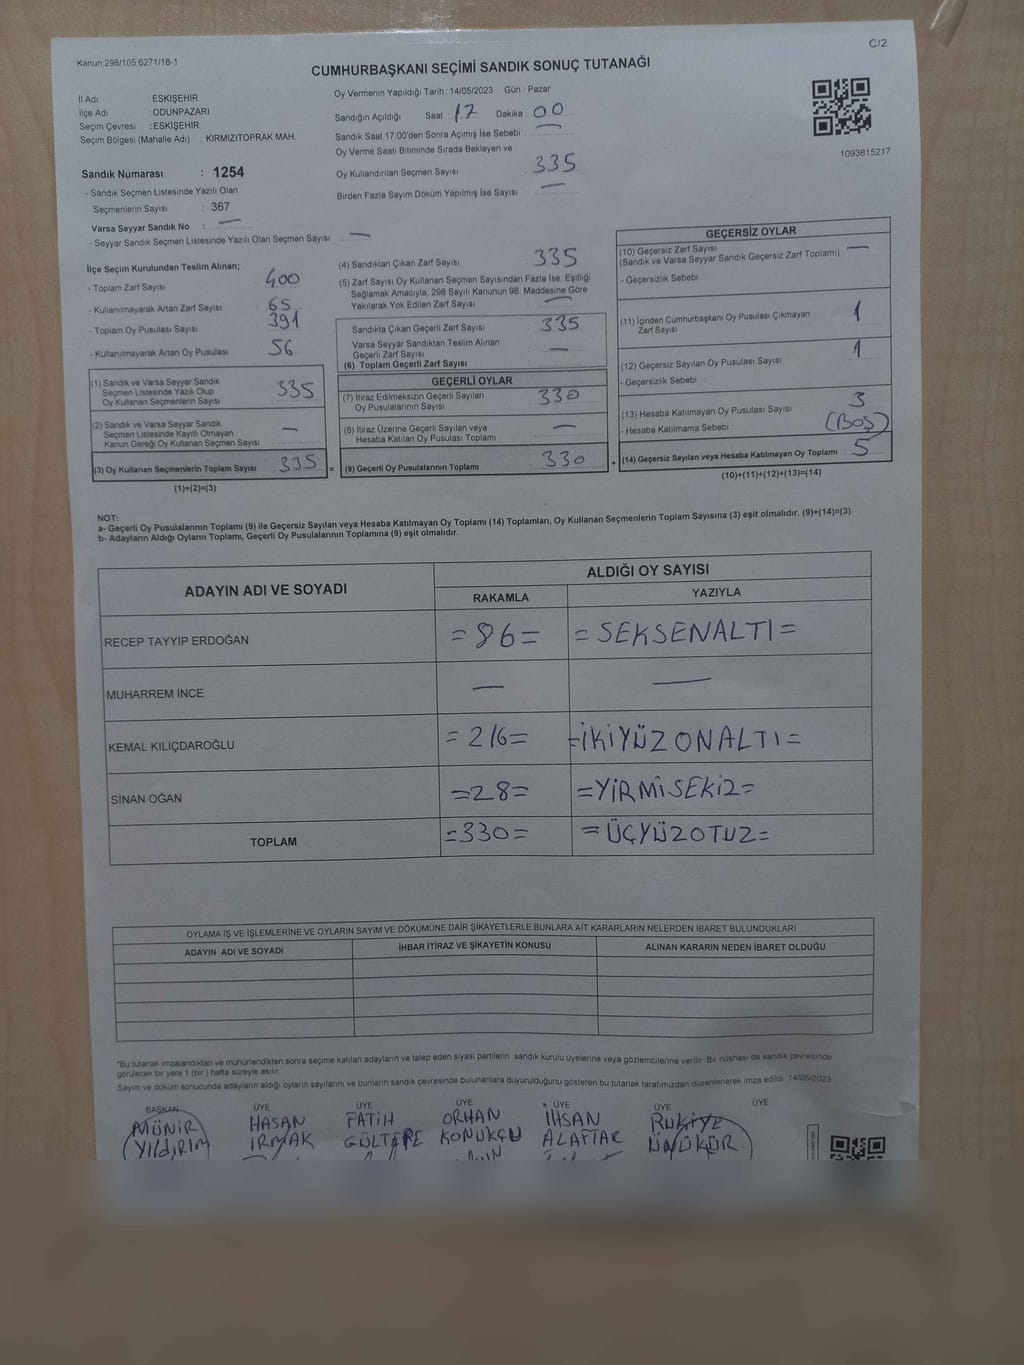 C/2
Kanun:298/105;6271/18-1
CUMHURBAŞKANI SEÇİMİ SANDIK SONUÇ TUTANAĞI
İl Adı : ESKİŞEHİR
İlçe Adı : ODUNPAZARI
Seçim Çevresi : ESKİŞEHİR
Seçim Bölgesi (Mahalle Adı) : KIRMIZITOPRAK MAH.
Sandık Numarası : 1254
- Sandık Seçmen Listesinde Yazılı Olan
Seçmenlerin Sayısı : 367
Varsa Seyyar Sandık No : —
- Seyyar Sandık Seçmen Listesinde Yazılı Olan Seçmen Sayısı —
Oy Vermenin Yapıldığı Tarih : 14/05/2023 Gün : Pazar
Sandığın Açıldığı Saat : 17 Dakika : 00
Sandık Saat 17:00'den Sonra Açımış İse Sebebi : —
Oy Verme Saati Bitiminde Sırada Bekleyen ve
Oy Kullandırılan Seçmen Sayısı : 335
Birden Fazla Sayım Döküm Yapılmış İse Sayısı —
1093815217
İlçe Seçim Kurulundan Teslim Alınan;
- Toplam Zarf Sayısı 400
- Kullanılmayarak Artan Zarf Sayısı 65
- Toplam Oy Pusulası Sayısı 391
- Kullanılmayarak Artan Oy Pusulası 56
(1) Sandık ve Varsa Seyyar Sandık
Seçmen Listesinde Yazılı Olup
Oy Kullanan Seçmenlerin Sayısı 335
(2) Sandık ve Varsa Seyyar Sandık
Seçmen Listesinde Kayıtlı Olmayan
Kanun Gereği Oy Kullanan Seçmen Sayısı —
(3) Oy Kullanan Seçmenlerin Toplam Sayısı 335 =
(1)+(2)=(3)
(4) Sandıktan Çıkan Zarf Sayısı 335
(5) Zarf Sayısı Oy Kullanan Seçmen Sayısından Fazla İse, Eşitliği
Sağlamak Amacıyla, 298 Sayılı Kanunun 98. Maddesine Göre
Yakılarak Yok Edilen Zarf Sayısı —
Sandıkta Çıkan Geçerli Zarf Sayısı 335
Varsa Seyyar Sandıktan Teslim Alınan
Geçerli Zarf Sayısı —
(6) Toplam Geçerli Zarf Sayısı
GEÇERLİ OYLAR
(7) İtiraz Edilmeksizin Geçerli Sayılan
Oy Pusulalarının Sayısı 330
(8) İtiraz Üzerine Geçerli Sayılan veya
Hesaba Katılan Oy Pusulası Toplamı —
(9) Geçerli Oy Pusulalarının Toplamı 330 +
GEÇERSİZ OYLAR
(10) Geçersiz Zarf Sayısı
(Sandık ve Varsa Seyyar Sandık Geçersiz Zarf Toplamı) —
- Geçersizlik Sebebi
(11) İçinden Cumhurbaşkanı Oy Pusulası Çıkmayan
Zarf Sayısı 1
(12) Geçersiz Sayılan Oy Pusulası Sayısı 1
- Geçersizlik Sebebi
(13) Hesaba Katılmayan Oy Pusulası Sayısı 3
- Hesaba Katılmama Sebebi : (BOŞ)
(14) Geçersiz Sayılan veya Hesaba Katılmayan Oy Toplamı 5
(10)+(11)+(12)+(13)=(14)
NOT:
a- Geçerli Oy Pusulalarının Toplamı (9) ile Geçersiz Sayılan veya Hesaba Katılmayan Oy Toplamı (14) Toplamları, Oy Kullanan Seçmenlerin Toplam Sayısına (3) eşit olmalıdır. (9)+(14)=(3)
b- Adayların Aldığı Oyların Toplamı, Geçerli Oy Pusulalarının Toplamına (9) eşit olmalıdır.
ADAYIN ADI VE SOYADI ALDIĞI OY SAYISI
RAKAMLA YAZIYLA
RECEP TAYYİP ERDOĞAN =86= =SEKSENALTI=
MUHARREM İNCE — —
KEMAL KILIÇDAROĞLU =216= =İKİYÜZONALTI=
SİNAN OĞAN =28= =YİRMİSEKİZ=
TOPLAM =330= =ÜÇYÜZOTUZ=
OYLAMA İŞ VE İŞLEMLERİNE VE OYLARIN SAYIM VE DÖKÜMÜNE DAİR ŞİKAYETLERLE BUNLARA AİT KARARLARIN NELERDEN İBARET BULUNDUKLARI
ADAYIN ADI VE SOYADI İHBAR İTİRAZ VE ŞİKAYETİN KONUSU ALINAN KARARIN NEDEN İBARET OLDUĞU
*Bu tutanak imzalandıktan ve mühürlendikten sonra seçime katılan adayların ve talep eden siyasi partilerin sandık kurulu üyelerine veya gözlemcilerine verilir. Bir nüshası da sandık çevresinde
görülecek bir yere 1 (bir) hafta süreyle asılır.
Sayım ve döküm sonucunda adayların aldığı oyların sayılarını ve bunların sandık çevresinde bulunanlara duyurulduğunu gösteren bu tutanak tarafımızdan düzenlenerek imza edildi. 14/05/2023
BAŞKAN ÜYE ÜYE ÜYE ÜYE ÜYE ÜYE
MÜNİR HASAN FATİH ORHAN İHSAN RUKİYE
YILDIRIM IRMAK GÜLTEPE KONUKÇU ALAFTAR